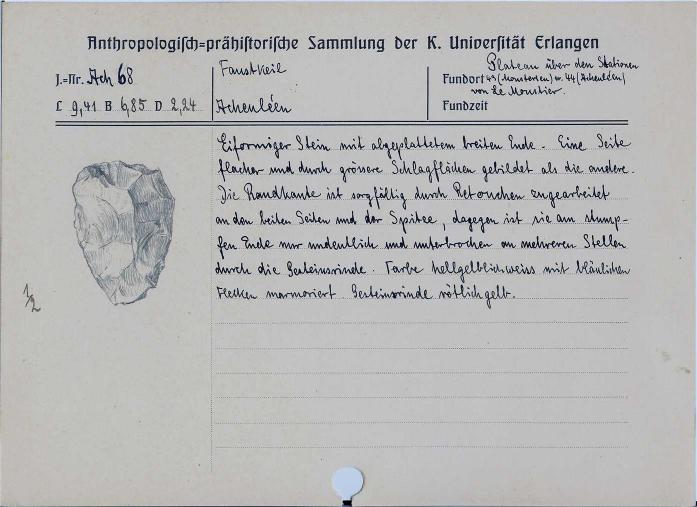 Anthropologisch=prähistorische Sammlung der K. Universität Erlangen
J.=Nr. Ach 68
L 9,41 B 6,85 D 2,24
Faustkeil
Acheuléen
Plateau über den Stationen
Fundort 43 (Moustérien) u. 44 (Acheuléen)
von Le Moustier.
Fundzeit
Eiförmiger Stein mit abgeplattetem breiten Ende. Eine Seite
flacher und durch grössere Schlagflächen gebildet als die andere.
Die Randkante ist sorgfältig durch Retouchen zugearbeitet
an den beiden Seiten und der Spitze, dagegen ist sie am stump-
fen Ende nur undeutlich und unterbrochen an mehreren Stellen
durch die Gesteinsrinde. Farbe hellgelblichweiss mit bläulichen
Flecken marmoriert. Gesteinsrinde rötlichgelb.
1/2